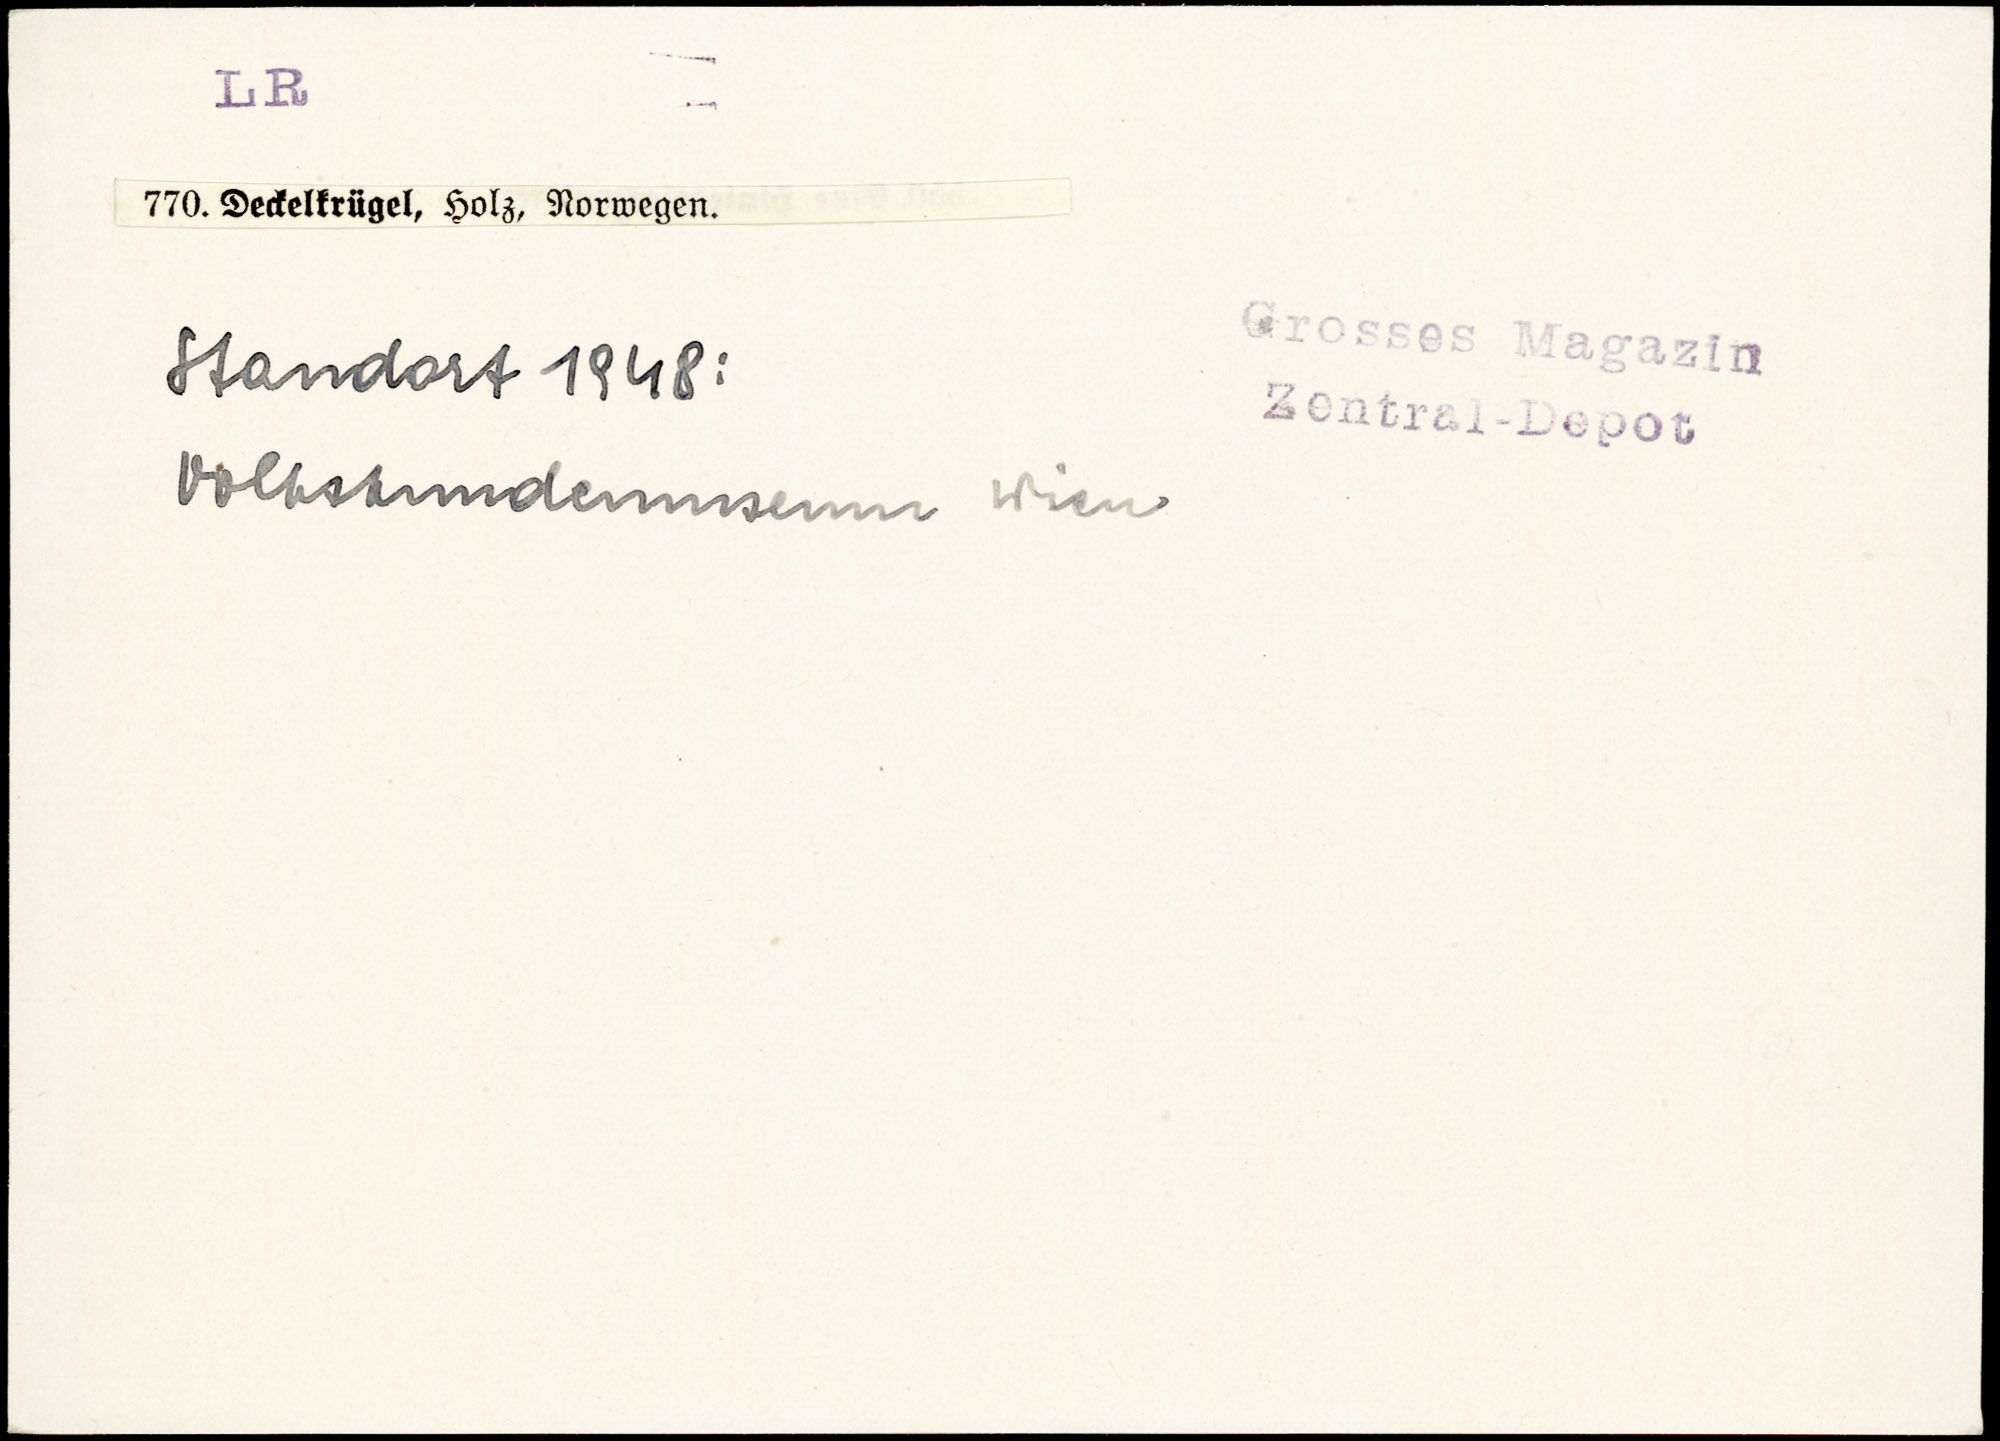 LR
770. Deckelkrügel, Holz, Norwegen.
Standort 1948:
Volkskundemuseum Wien
Grosses Magazin
Zentral-Depot